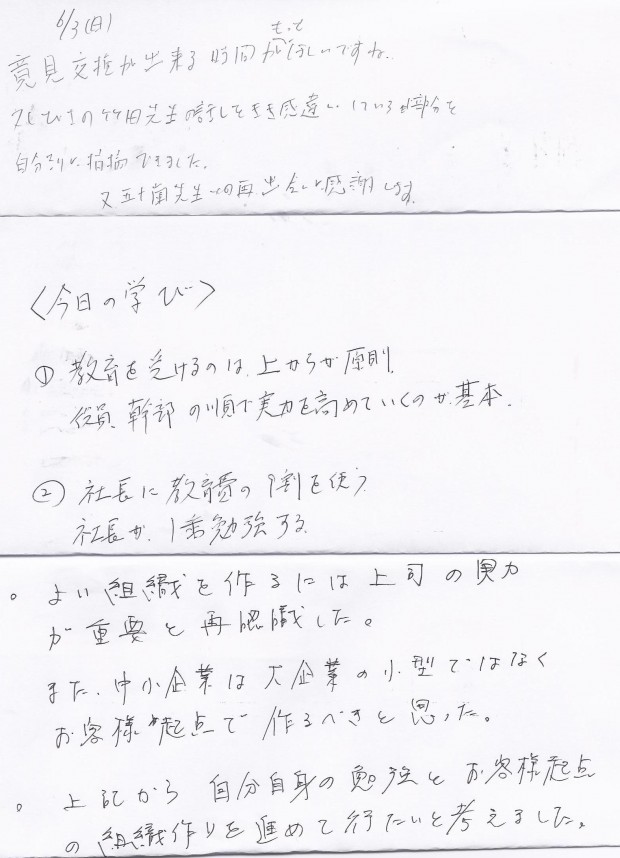 6/3(日)
もっと
意見交換が出来る時間がほしいですね。
久しびりの竹田先生の話しをきき感違いしている部分を
自分なりに指摘できました。
又五十嵐先生との再出会いに感謝します。
〈今日の学び〉
① 教育を受けるのは、上からが原則、
役員、幹部の順で実力を高めていくのが基本。
② 社長に教育費の9割を使う
社長が、1番勉強する。
。よい組織を作るには上司の実力
が重要と再認識した。
また、中小企業は大企業の小型ではなく
お客様起点で作るべきと思った。
。上記から自分自身の勉強とお客様起点
の組織作りを進めて行たいと考えました。